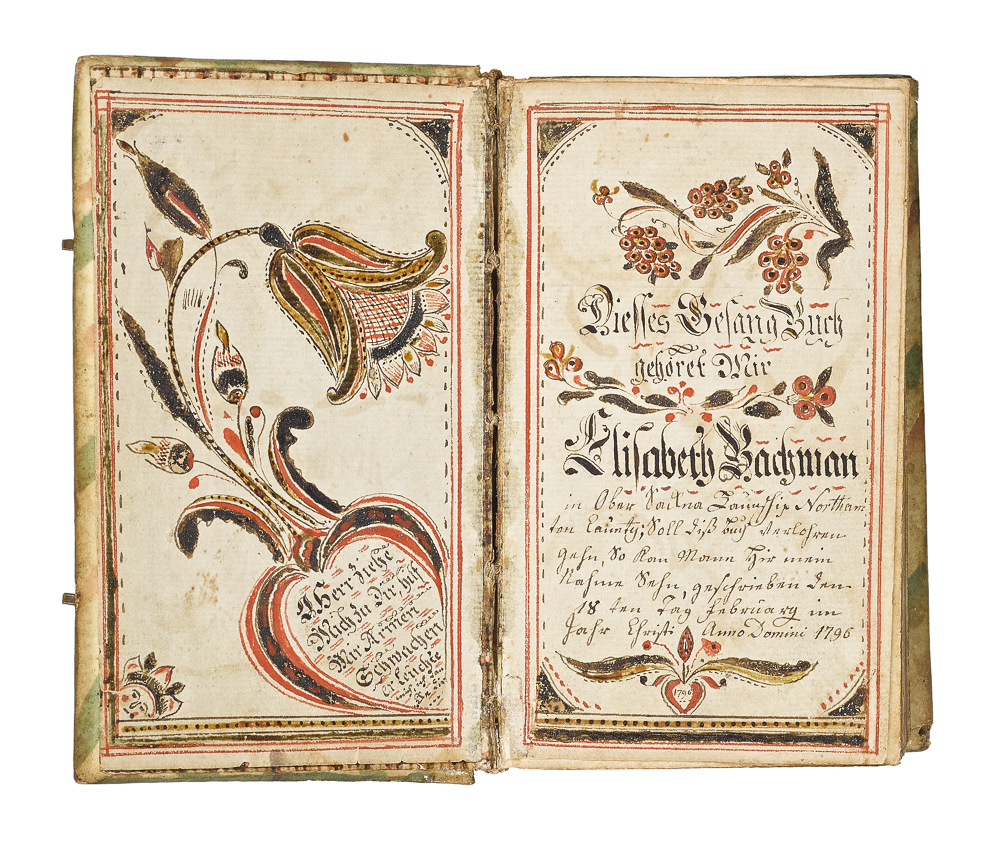 Ach Herr Ziehe
Mich zu Dir, hilf
Mir Armen
Schwachen
Erleuchte
Diesses Gesang Buch
gehöret Mir
Elisabeth Bachman
in Ober Sackna Taunschip Northam
ton Caunty, Soll diß buch Verlohren
gehn, So Kan Mann Hir mein
Nahme Sehn, geschrieben den
18 ten Tag February im
Jahr Christi Anno Domini 1796
1796